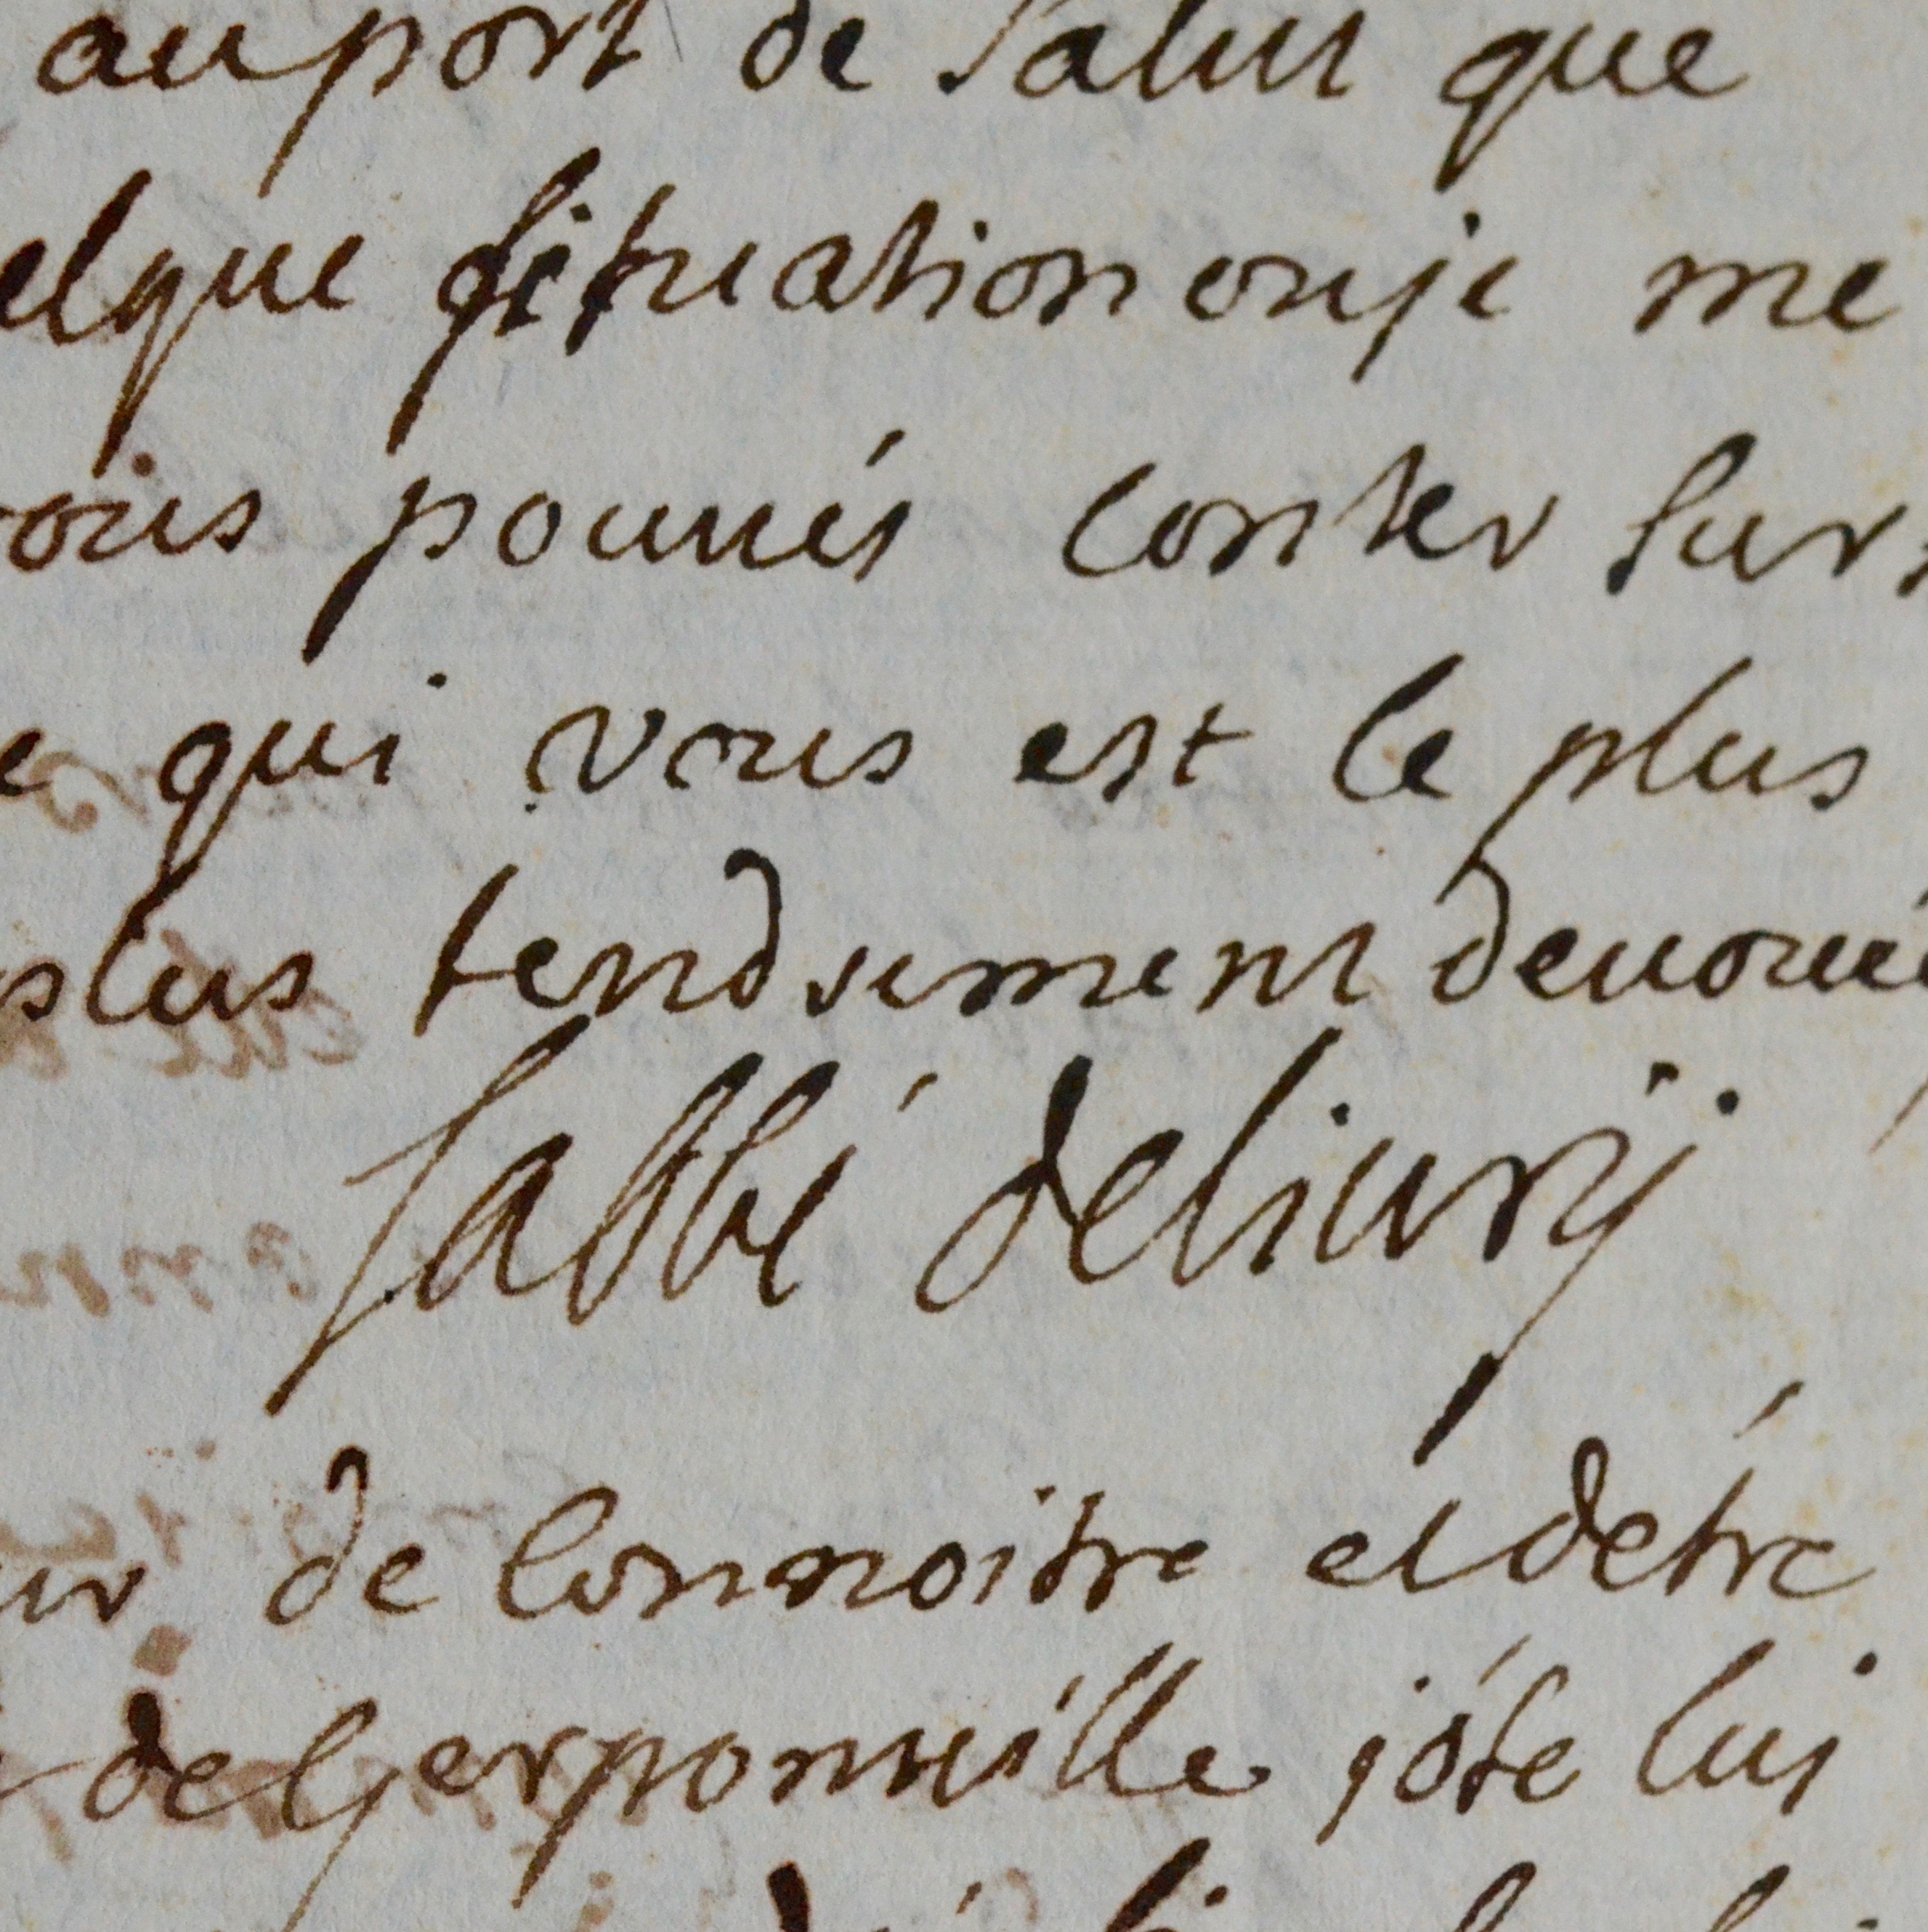 auport de Salut que
elque situation ouje me
vous pouués conter sur
e qui vous est le plus
plus tendrement deuoüé
labbé deliurÿ
ur de connoitre et detre
de Gerponuille j'óse lui